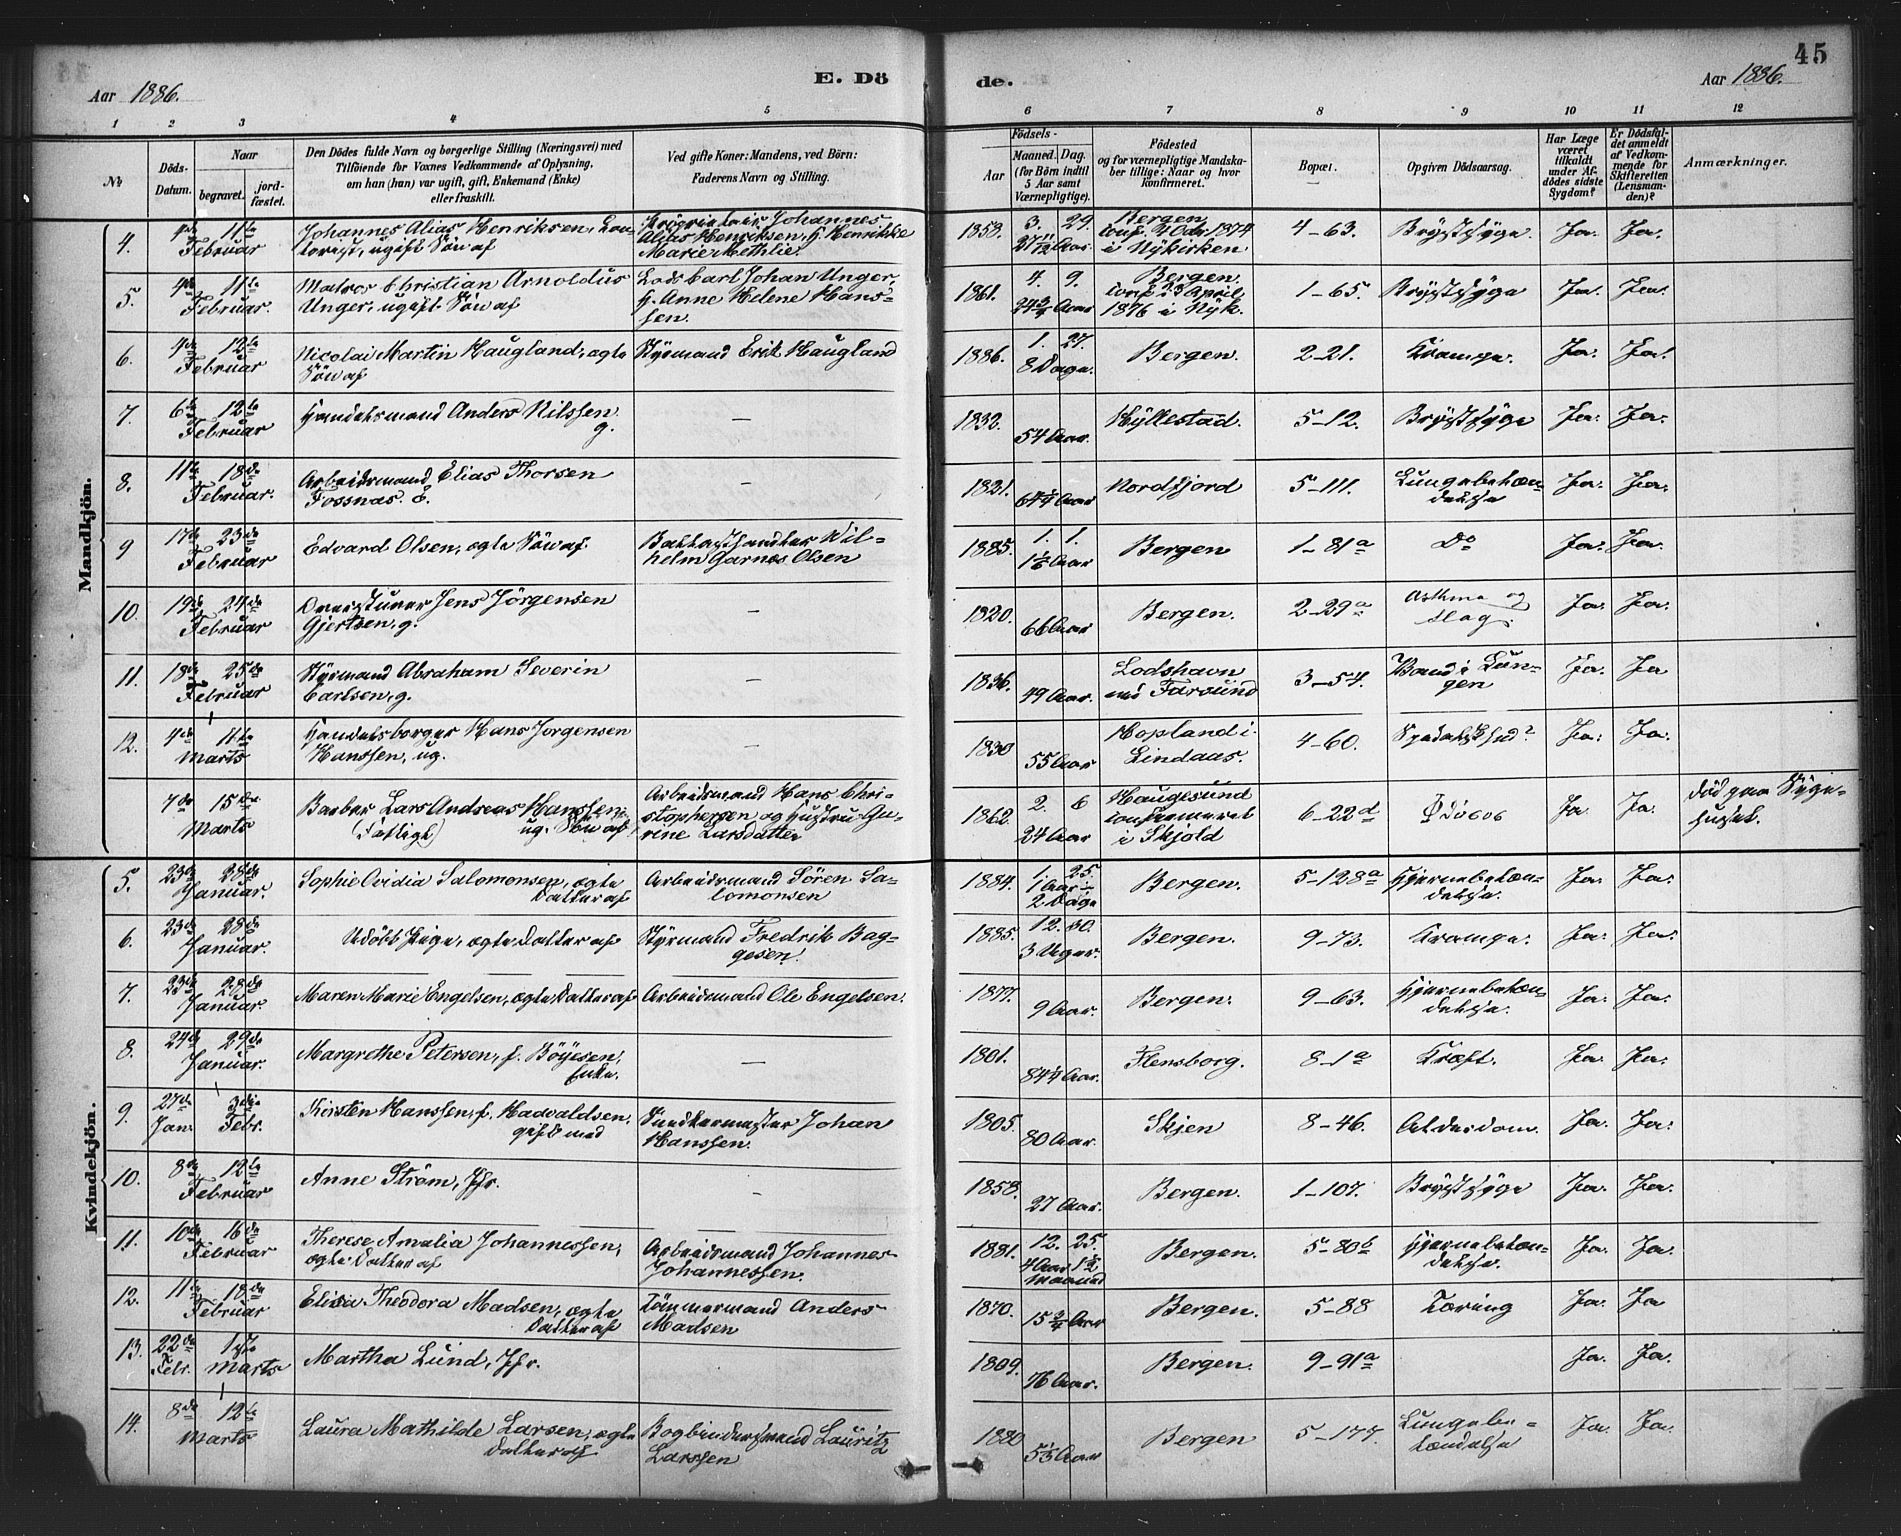 45
E. Dö de.
Aar 1886. Aar 1886.
1 2 3 4 5 6 7 8 9 10 11 12
No
Döds-Datum.
Naar
begravet.
jord-fæstet.
Den Dödes fulde Navn og borgerlige Stilling (Næringsvei) med
Tilföiende for Voxnes Vedkommende af Oplysning,
om han (hun) var ugift, gift, Enkemand (Enke)
eller fraskilt.
Ved gifte Koner: Mandens, ved Börn:
Faderens Navn og Stilling.
Födsels-
Aar
Maaned. Dag.
(for Börn indtil
5 Aar samt
Værnepligtige).
Födested
og for værnepligtige Mandska-
ber tillige: Naar og hvor
konfirmeret.
Bopæl.
Opgiven Dödsaarsag.
Har Læge
været
tilkaldt
under Af-
dödes sidste
Sygdom?
Er Dödsfal-
det anmeldt
af Vedkom-
mende for
Skifteretten
(Lensman-
den)?
Anmærkninger.
Mandkjön.
4. 4de 11te Februar Johannes Alias Henriksen, ugift Søn af Johannes Alias Henriksen, H. Henrikke Marie Methlie. 1858. 3. 29. 27 11/12 Aar Bergen conf. 1874 i Nykirken 4-63. Brystsyge. Ja. Ja.
5. 4de 11te Februar. Matros Christian Arnoldus Unger, ugift Søn af Lods Carl Johan Unger, H. Anne Helene Hanssen. 1861. 4. 9. 24 3/4 Aar Bergen, conf. 23 April 1876 i Nyk. 1-65. Brystsyge Ja. Ja.
6. 4de 12te Februar Nicolai Martin Haugland, ægte Søn af Styrmand Erik Haugland 1886. 1. 27. 8 Dage. Bergen. 2-21. Krampe. Ja. Ja.
7. 6te 12te Februar Handelsmand Anders Nilssen g. — 1832. 54 Aar. Hyllestad. 5-12. Brystsyge Ja. Ja.
8. 11te 18de Februar. Arbeidsmand Elias Thorsen Fossnas. E. — 1821. 64 1/4 Aar Nordfjord 5-111. Lungebetændelse Ja. Ja.
9 17de 23de Februar Edvard Olsen, ægte Søn af Wilhelm Garnæs Olsen 1885. 1. 1. 1 1/6 Aar Bergen 1-81a Do Ja. Ja.
10. 19de 24de Februar Jens Jörgensen Gjertsen, g. — 1820. 66 Aar Bergen. 2-29a Asthma og Slag. Ja. Ja.
11. 18de 25de Februar Styrmand Abraham Severin Carlsen, g. — 1836. 49 Aar. Lodshavn ved Farsund 3-54. Vand i Lungen Ja. Ja
12. 4de 11te Marts Handelsborger Hans Jorgensen Hanssen, ug. — 1830 55 Aar Hopland i Lindaas. 4-60. Spedalskhed? Ja. Ja.
7de 15de Marts Barber Lars Andreas Hanssen (Fattigt) ug. Søn af Arbeidsmand Hans Christophersen og Hustru Gurine Larsdatter 1862. 2. 6 24 Aar Haugesund confirmeret i Skjold 6-22d Ja. Ja. död paa Sygehuset.
Kvindekjön.
5. 23de 28de Januar. Sophie Ovidia Salomonsen, ægte Datter af Arbeidsmand Sören Salomonsen 1884. 1. 25. 1 Aar 2 Dage Bergen. 5-128a Hjernebetændelse. Ja. Ja.
6. 23de 28de Januar. Udöbt Pige, ægte Datter af Styrmand Fredrik Baggesen. 1885. 12. 30. 3 Uger. Bergen. 9-73. Krampe. Ja. Ja.
7. 23de 28de Januar. Maren Marie Engelsen, ægte Datter af Arbeidsmand Ole Engelsen. 1877. 9 Aar. Bergen. 9-63. Hjernebetændelse. Ja. Ja.
8. 24de 29de Januar. Margrethe Petersen, f. Böyesen, Enke. — 1801. 84 1/4 Aar. Flensborg. 8-1a Kræft. Ja. Ja.
9. 27de Jan. 3die Febr. Kirsten Hanssen, f. Hadvaldsen, gift med Johan Hanssen. 1805. 80 Aar. Skjen 8-46. Alderdom. Ja. Ja.
10. 8de 12te Februar Anne Ström, Jfr. — 1858. 27 Aar. Bergen. 1-107. Brystsyge Ja. Ja.
11. 10de 16de Februar Therese Amalia Johannessen, ægte Datter af Arbeidsmand Johannes Johannessen. 1881. 12. 25. 4 Aar 1 1/2 Maaned Bergen. 5-80b Hjernebetændelse. Ja. Ja.
12. 11te 18de Februar Elisa Theodora Madsen, ægte Datter af Tömmermand Anders Madsen 1870. 15 3/4 Aar Bergen. 5-88 Tæring Ja. Ja
13. 22de Febr. 1ste Marts Martha Lund, Jfr. 1809. 76 Aar. Bergen. 9-91a Ja. Ja.
14. 8de 12te Marts Laura Mathilde Larsen, ægte Datter af Bogbindersvend Lauritz Larssen 1880 5 1/3 Aar Bergen 5-177. Lungebetændelse Ja. Ja.